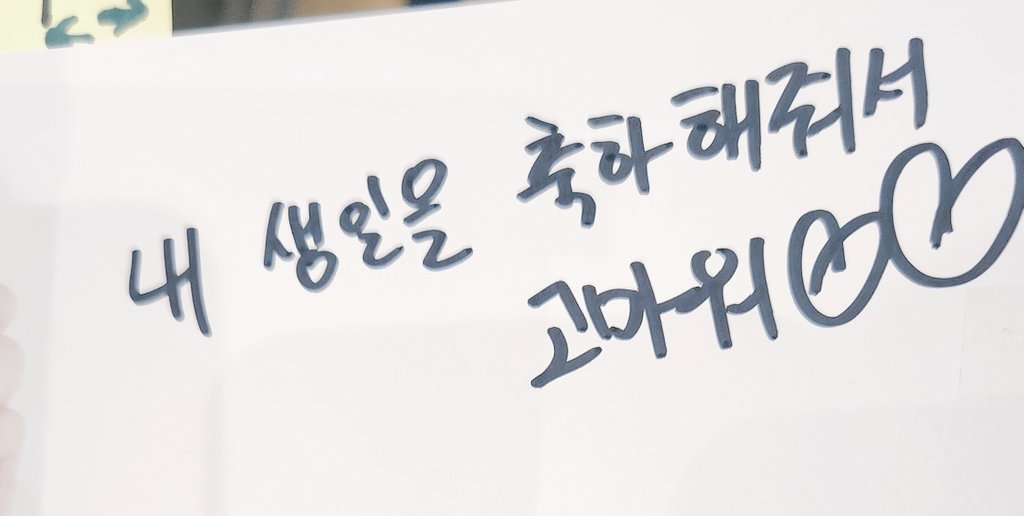 내 생일을 축하해줘서
고마워♡♡